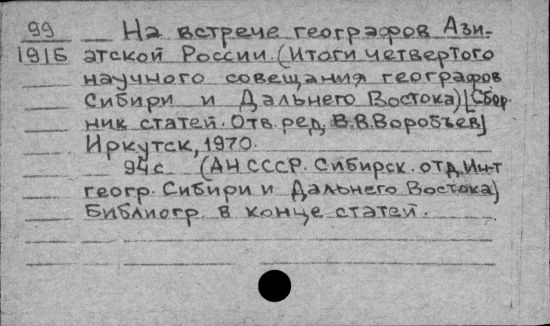 99 На встрече географов Ази-
1915 атской России. (Итоги четвертого
научного совещания географов
Сибири и Дальнего Востока) [Сбор
ник статей. Отв. ред. В.В.Воробьев]
Иркутск, 1970.
94 с (АН СССР. Сибирск. отд. Ин-т
геогр. Сибири и Дальнего Востока)
Библиогр. в конце статей.